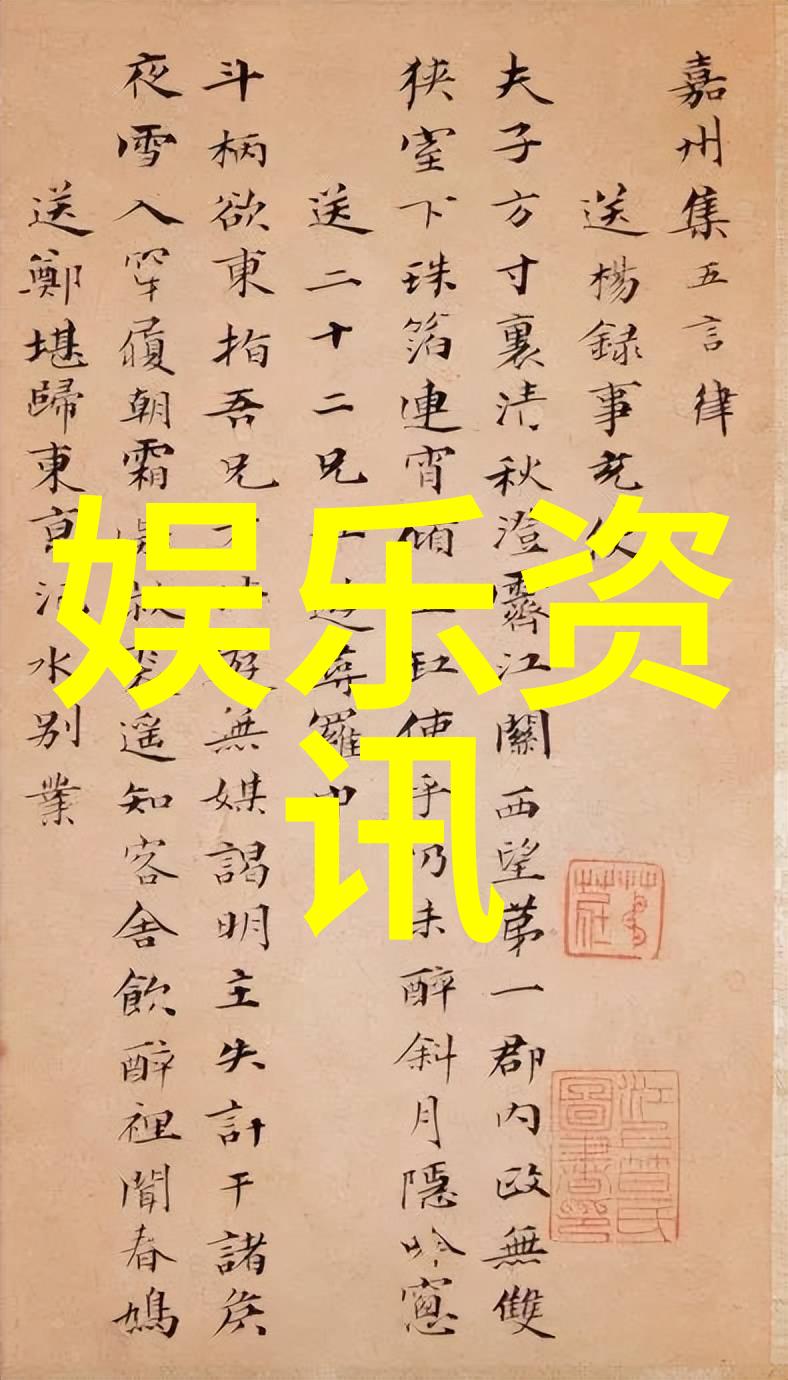 嘉州集五言律
送楊録事充
夫子方寸裏清秋澄霽江關西望苐一郡内政無雙
狹室下珠箔連宵傾缸使乎仍未醉斜月隱吟窓
送二十二兄遊尋羅中
斗柄欲東指吾兄遊無媒謁明主失計干諸侯
夜雪入穿履朝霜遥知客舍飲醉裡聞春鳩
送鄭堪歸東京水别業
娱乐资
讯
江上笪氏圖書印